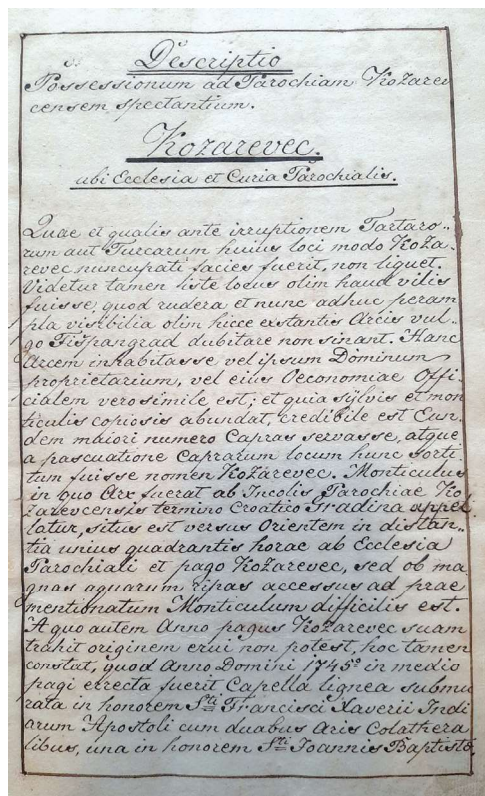 Descriptio
Possessionum ad Parochiam Kozarev
censem spectantium.
Kozarevec.
ubi Ecclesia et Curia Parochialis.
Quae et qualis ante irruptionem Tartaro-
rum aut Turcarum huius loci modo Koza-
revec nuncupati facies fuerit, non liquet.
Videtur tamen iste locus olim haud vilis
fuisse, quod rudera et nunc adhuc peram
pla visibilia olim hicce exstantis Arcis vul-
go Tispangrad dubitare non sinant. Hanc
Arcem inhabitasse vel ipsum Dominum
proprietarium, vel eius Oeconomiae Offi-
cialem verosimile est; et quia sylvis et mon
ticulis copiosis abundat, credibile est Eun-
dem maiori numero Capras servasse, atque
a pascuatione Caprarum locum hunc sorti
tum fuisse nomen Kozarevec. Monticulus
in quo Arx fuerat ab Incolis Parochiae Ko
zarevcensis termino Croatico Gradina appel
latur, situs est versus Orientem in distan-
tia unius quadrantis horae ab Ecclesia
Parochiali et pago Kozarevec, sed ob ma
gnas aquarum ripas accessus ad prae
mentionatum Monticulum difficilis est.
A quo autem Anno pagus Kozarevec suam
trahit originem erui non potest, hoc tamen
constat, quod Anno Domini 1745º in medio
pagi errecta fuerit Capella lignea submu
rata in honorem Sti Francisci Xaverii Indi
arum Apostoli cum duabus Aris Colathera
libus, una in honorem Sti Joannis Baptistae,